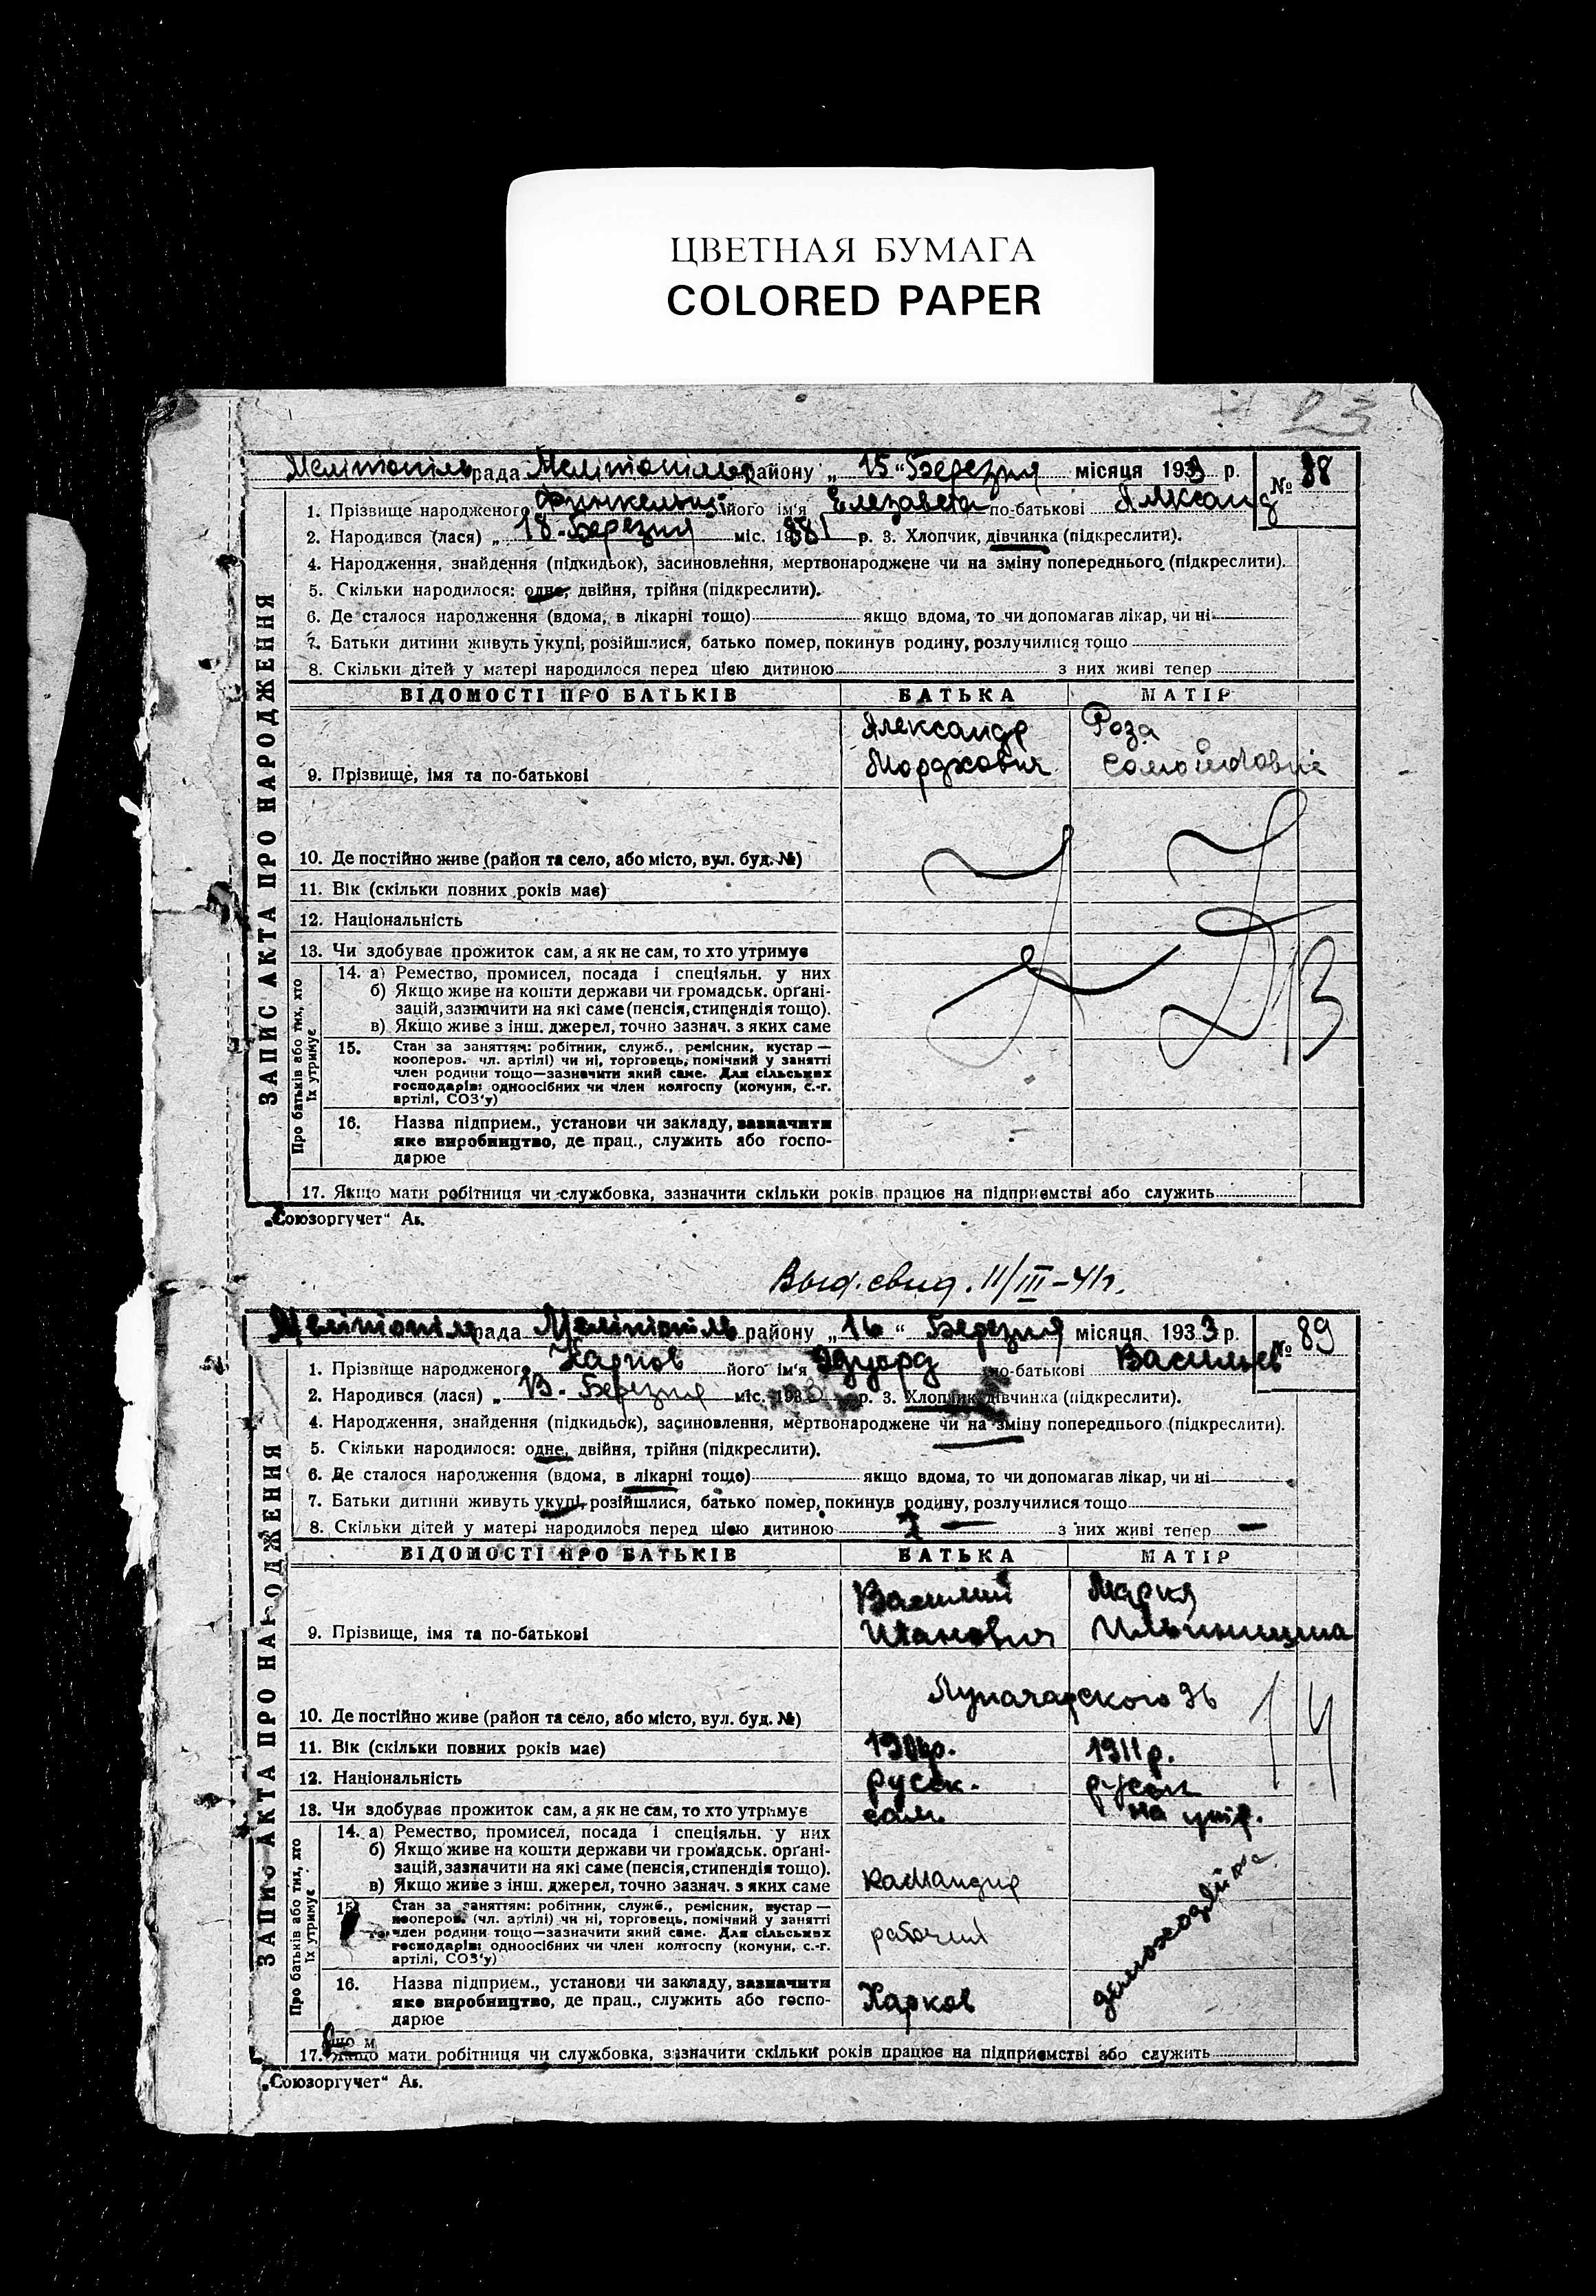 ЦВЕТНАЯ БУМАГА
COLORED PAPER
23
Мелітопіль рада Мелітопіль району „ 15 “ Березня місяця 1933 р. № 88
1. Прізвище народженого його ім'я Елезавета по-батькові Александ
2. Народився (лася) „ 18 - Березня міс. 1881 р. 3. Хлопчик, дівчинка (підкреслити).
4. Народження, знайдення (підкидьок), засиновлення, мертвонароджене чи на зміну попереднього (підкреслити).
5. Скільки народилося: одне, двійня, трійня (підкреслити).
6. Де сталося народження (вдома, в лікарні тощо) якщо вдома, то чи допомагав лікар, чи ні
7. Батьки дитини живуть укупі, розійшлися, батько помер, покинув родину, розлучилися тощо
8. Скільки дітей у матері народилося перед цією дитиною з них живі тепер
ЗАПИС АКТА ПРО НАРОДЖЕННЯ
ВІДОМОСТІ ПРО БАТЬКІВ БАТЬКА МАТІР
Александр Роза
9. Прізвище, імя та по-батькові Мордкович
10. Де постійно живе (район та село, або місто, вул. буд. №)
11. Вік (скільки повних років має)
12. Національність
13. Чи здобуває прожиток сам, а як не сам, то хто утримує
Про батьків або тих, хто їх утримує
14. а) Ремество, промисел, посада і спеціяльн. у них
б) Якщо живе на кошти держави чи громадськ. органі-
зацій, зазначити на які саме (пенсія, стипендія тощо).
в) Якщо живе з інш. джерел, точно зазнач. з яких саме
13
15. Стан за заняттям: робітник, служб., ремісник, кустар —
кооперов. чл. артілі) чи ні, торговець, помічний у занятті
член родини тощо—зазначити який саме. Для сільських
господарів: одноосібних чи член колгоспу (комуни, с.-г.
артілі, СОЗ'у)
16. Назва підприєм., установи чи закладу, зазначити
яке виробництво, де прац., служить або госпо-
дарює
17. Якщо мати робітниця чи службовка, зазначити скільки років працює на підприємстві або служить
„Союзоргучет“ Ак.
Выд. свид. 11/III-41г.
Мелітопіль рада Мелітопіль району „ 16 “ Березня місяця 1933 р. № 89
1. Прізвище народженого Карпов його ім'я Эдуард по-батькові Васильев
2. Народився (лася) „ 13 - Березня міс. 1933 р. 3. Хлопчик, дівчинка (підкреслити).
4. Народження, знайдення (підкидьок), засиновлення, мертвонароджене чи на зміну попереднього (підкреслити).
5. Скільки народилося: одне, двійня, трійня (підкреслити).
6. Де сталося народження (вдома, в лікарні тощо) якщо вдома, то чи допомагав лікар, чи ні
7. Батьки дитини живуть укупі, розійшлися, батько помер, покинув родину, розлучилися тощо
8. Скільки дітей у матері народилося перед цією дитиною з них живі тепер —
ЗАПИС АКТА ПРО НАРОДЖЕННЯ
ВІДОМОСТІ ПРО БАТЬКІВ БАТЬКА МАТІР
Василий Мария
9. Прізвище, імя та по-батькові Иванович Ильинишна
Луначарского 96
10. Де постійно живе (район та село, або місто, вул. буд. №)
14
11. Вік (скільки повних років має) 1911 р.
12. Національність русск. русск
13. Чи здобуває прожиток сам, а як не сам, то хто утримує сам на утр.
Про батьків або тих, хто їх утримує
14. а) Ремество, промисел, посада і спеціяльн. у них
б) Якщо живе на кошти держави чи громадськ. органі-
зацій, зазначити на які саме (пенсія, стипендія тощо).
в) Якщо живе з інш. джерел, точно зазнач. з яких саме
домохозяйка
15. Стан за заняттям: робітник, служб., ремісник, кустар —
кооперов. (чл. артілі) чи ні, торговець, помічний у занятті
член родини тощо—зазначити який саме. Для сільських
господарів: одноосібних чи член колгоспу (комуни, с.-г.
артілі, СОЗ'у)
рабочий
16. Назва підприєм., установи чи закладу, зазначити
яке виробництво, де прац., служить або госпо-
дарює
Харков
17. Якщо мати робітниця чи службовка, зазначити скільки років працює на підприємстві або служить
„Союзоргучет“ Ак.